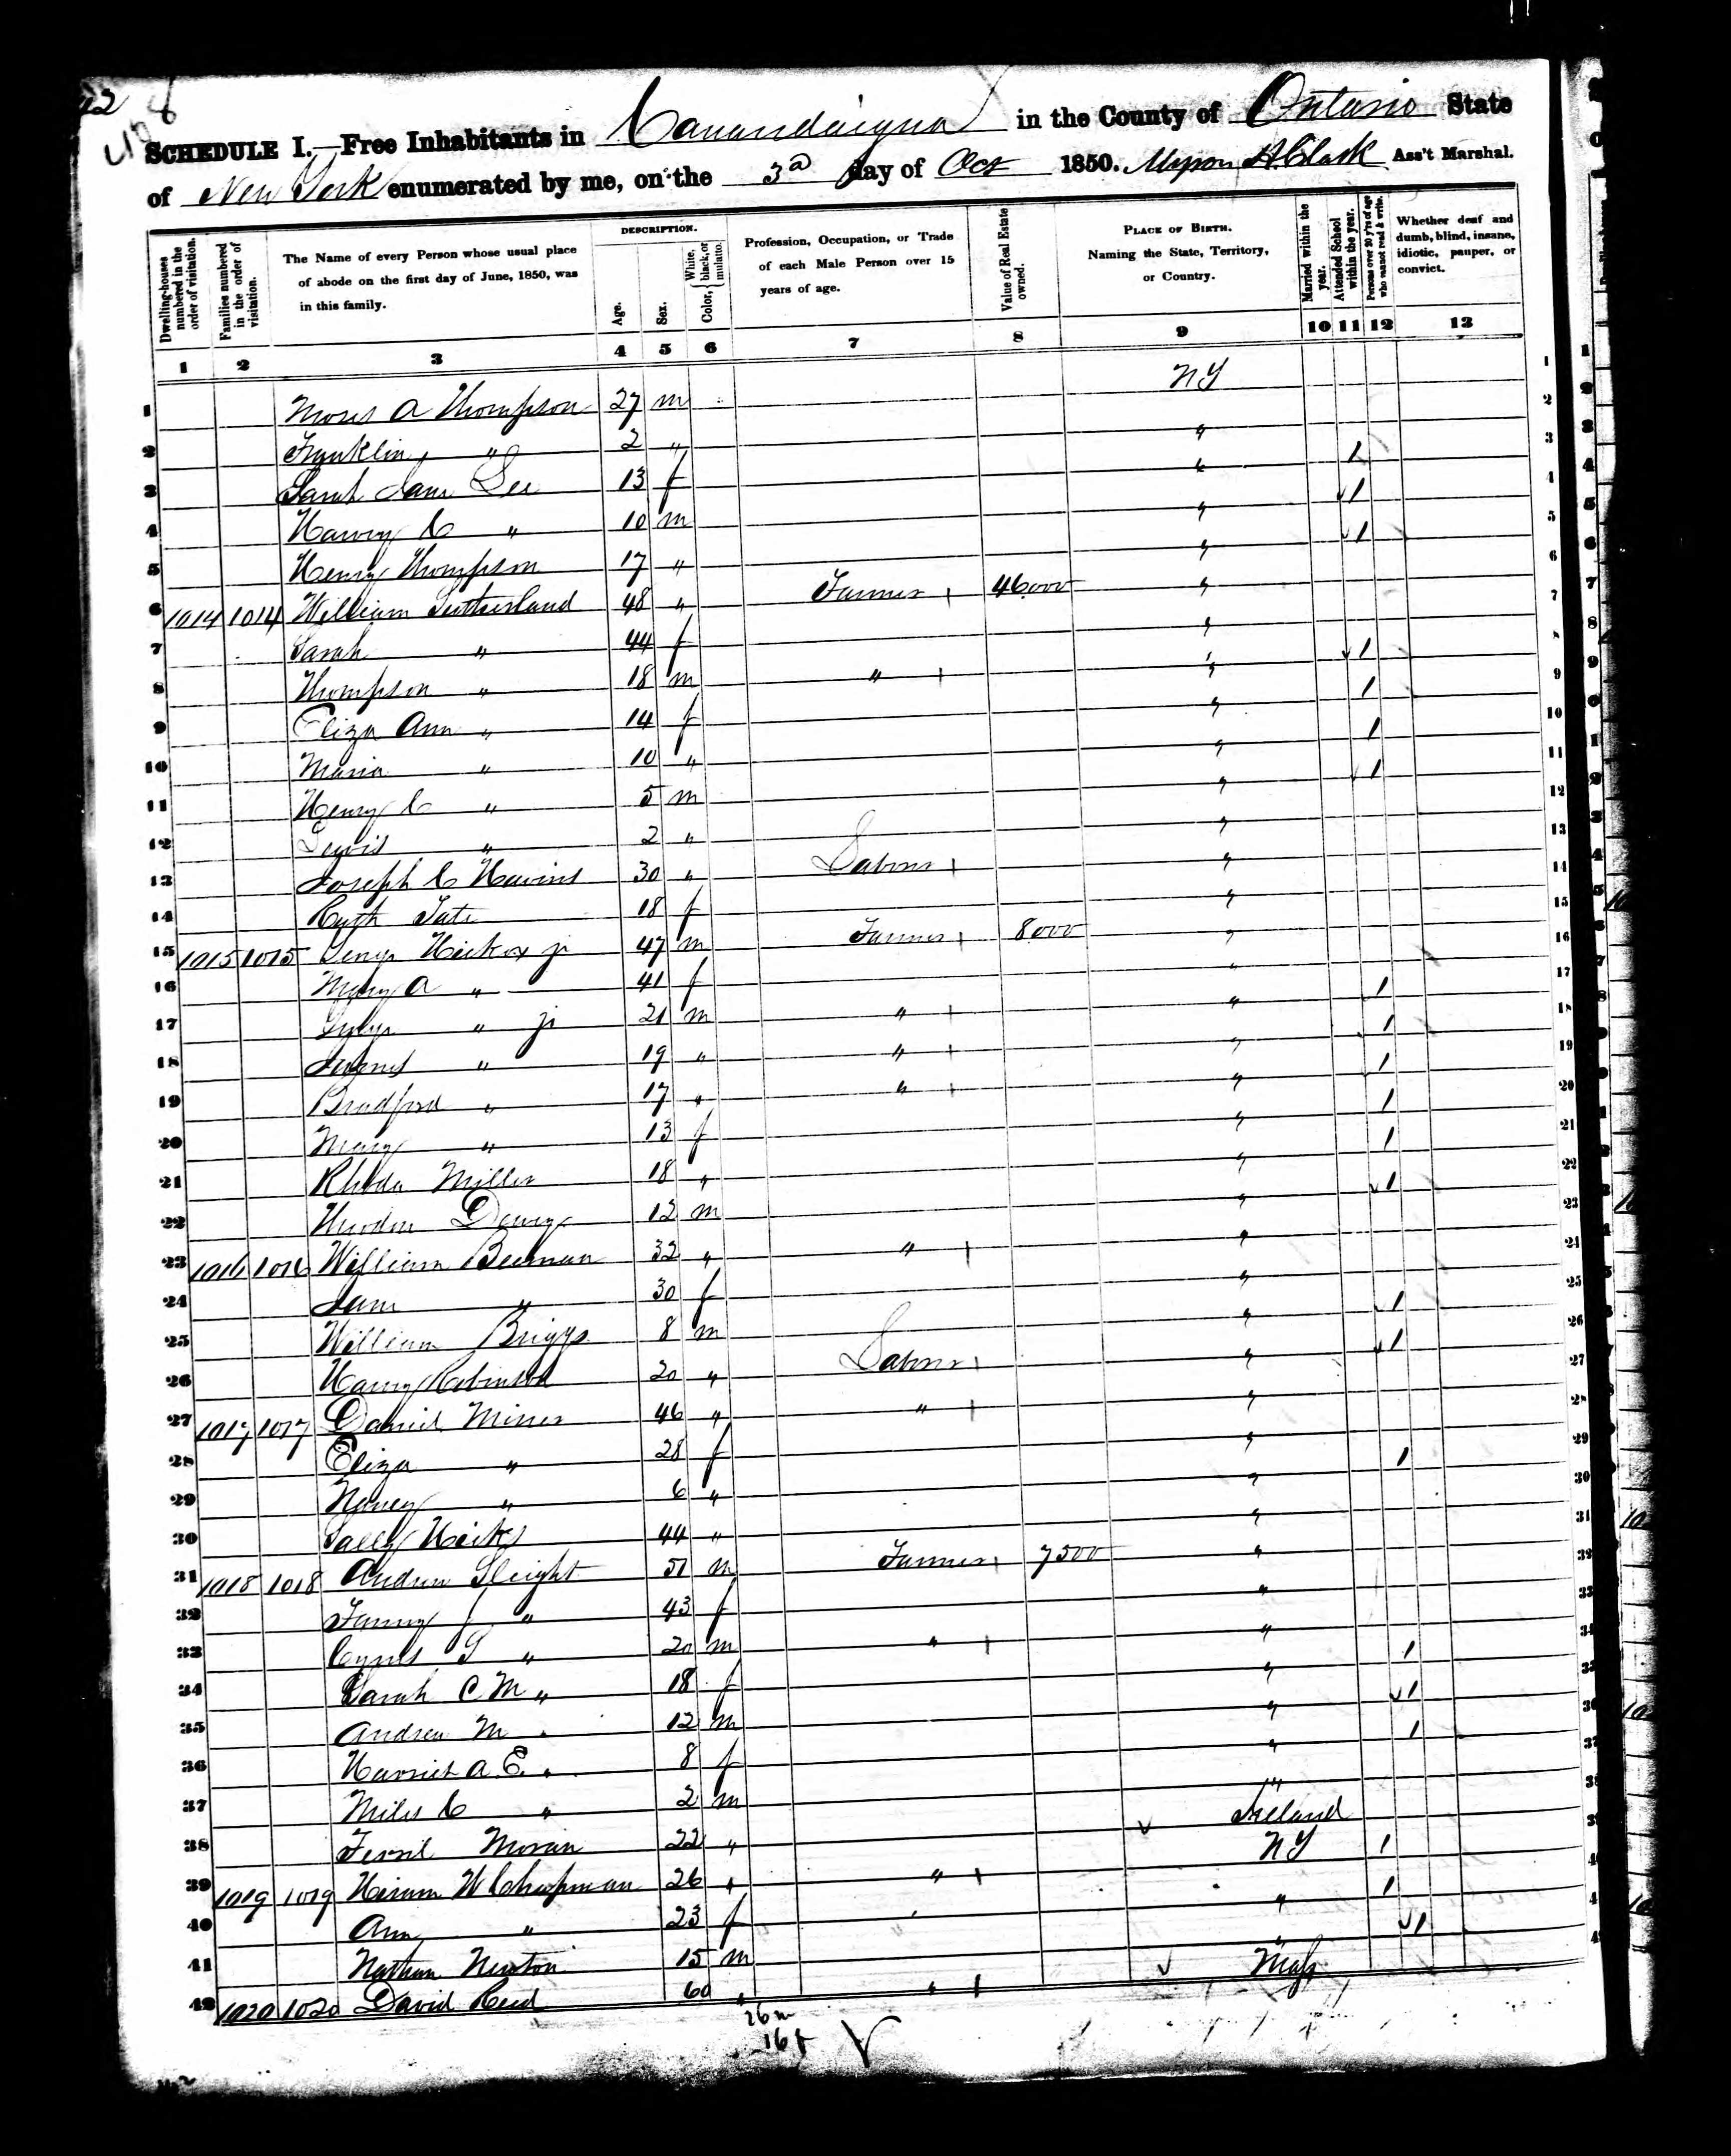 SCHEDULE I.—Free Inhabitants in Canandaigua in the County of Ontario State
of New York enumerated by me, on the 3d day of Oct 1850. Myron H. Clark Ass't Marshal.
Dwelling-houses numbered in the order of visitation.
Families numbered in the order of visitation.
The Name of every Person whose usual place of abode on the first day of June, 1850, was in this family.
DESCRIPTION.
Age.
Sex.
Color, { White, black, or mulatto.
Profession, Occupation, or Trade of each Male Person over 15 years of age.
Value of Real Estate owned.
PLACE OF BIRTH. Naming the State, Territory, or Country.
Married within the year.
Attended School within the year.
Persons over 20 y'rs of age who cannot read & write.
Whether deaf and dumb, blind, insane, idiotic, pauper, or convict.
1 2 3 4 5 6 7 8 9 10 11 12 13
1 Moses A Thompson 27 m NY
2 Franklin " 2 " "
3 Sarah Jane Lee 13 f " 1
4 Harvey C " 10 m " 1
5 Henry Thompson 17 " " 1
6 1014 1014 William Sutherland 48 " Farmer 46000 "
7 Sarah " 44 f "
8 Thompson " 18 m " " 1
9 Eliza Ann " 14 f " 1
10 Maria " 10 " " 1
11 Henry C " 5 m " 1
12 Lewis " 2 " "
13 Joseph C 30 " Laborer "
14 Ruth 18 f "
15 1015 1015 Hickox jr 47 m Farmer 8000 "
16 Mary A " 41 f "
17 " jr 21 m " " 1
18 " 19 " " " 1
19 Bradford " 17 " " " 1
20 Mary " 13 f " 1
21 Rhoda Miller 18 " " 1
22 12 m " 1
23 1016 1016 William Beeman 32 " " "
24 Jane " 30 f "
25 William Briggs 8 m " 1
26 Harvey Robinson 20 " Laborer " 1
27 1017 1017 Daniel Miner 46 " " "
28 Eliza " 28 f "
29 Nancy " 6 " " 1
30 Sally Hicks 44 " "
31 1018 1018 Andrew Sleight 51 m Farmer 7500 "
32 Fanny " 43 f "
33 Cyrus S " 20 m " "
34 Sarah C M " 18 f " 1
35 Andrew M " 12 m " 1
36 Harriet A. E. " 8 f " 1
37 Miles C " 2 m "
38 Moran 22 " Ireland
39 1019 1019 Hiram W Chapman 26 " " NY 1
40 Ann " 23 f " 1
41 Nathan Newton 15 m " 1
42 1020 1020 David Reed 60 " " Mass
26 m
16 f